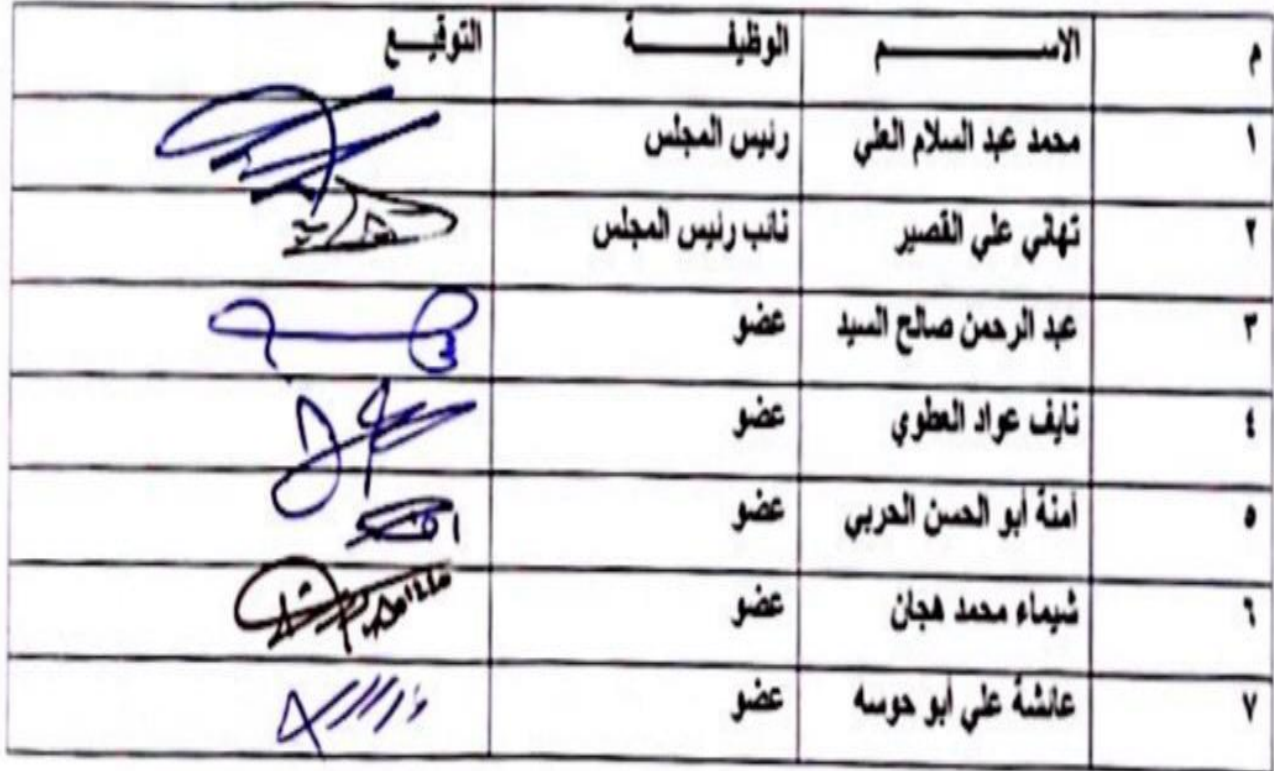 م الاســـــــم الوظيفـــــــة التوقيـــع
١ محمد عبد السلام العلي رئيس المجلس
٢ تهاني علي القصير نائب رئيس المجلس
٣ عبد الرحمن صالح السيد عضو
٤ نايف عواد العطوي عضو
٥ أمنة أبو الحسن الحربي عضو
٦ شيماء محمد هجان عضو
٧ عائشة علي أبو حوسه عضو